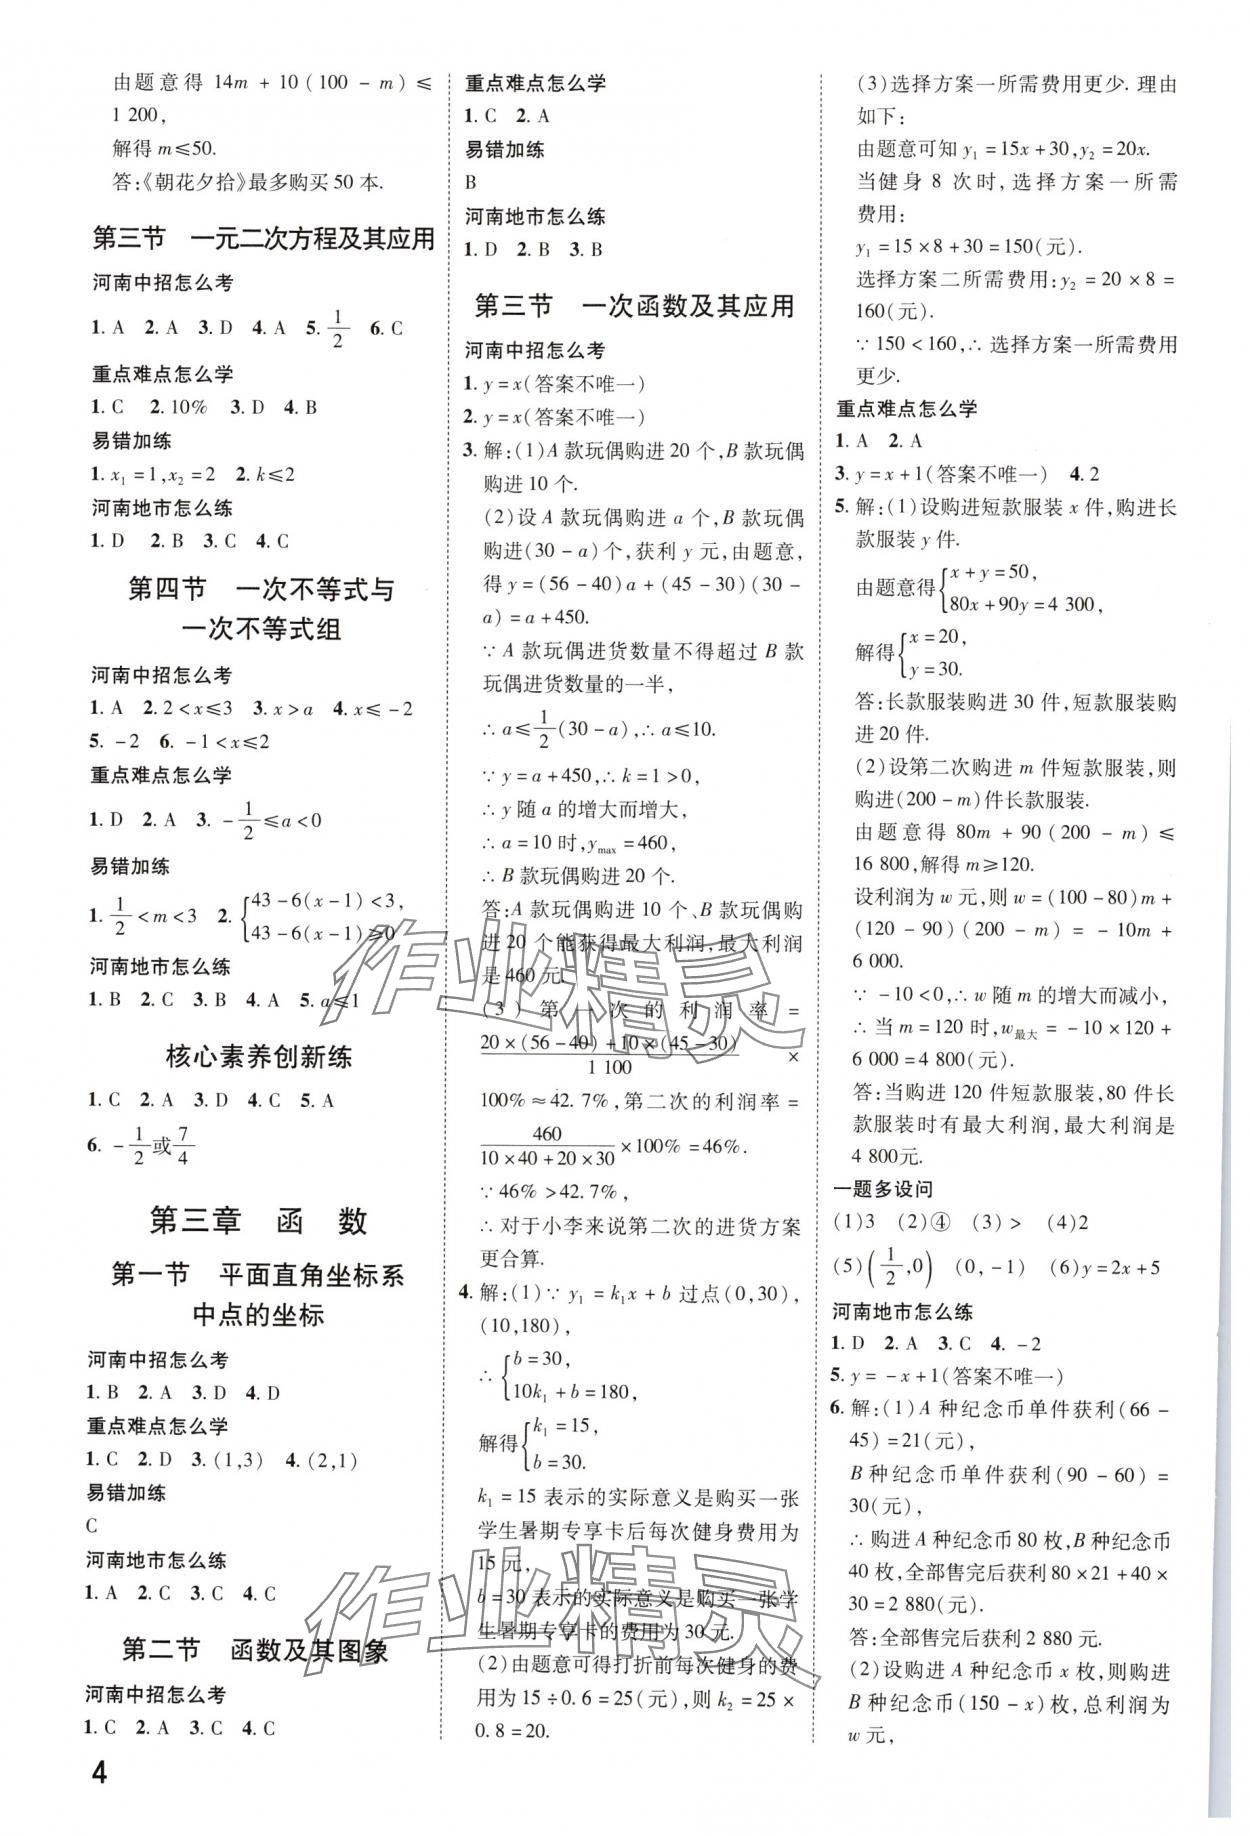 由题意得 14m + 10(100 - m) ≤
1 200,
解得 m≤50.
答:《朝花夕拾》最多购买 50 本.
第三节　一元二次方程及其应用
河南中招怎么考
1. A　2. A　3. D　4. A　5. 1/2　6. C
重点难点怎么学
1. C　2. 10%　3. D　4. B
易错加练
1. x₁=1,x₂=2　2. k≤2
河南地市怎么练
1. D　2. B　3. C　4. C
第四节　一次不等式与
一次不等式组
河南中招怎么考
1. A　2. 2<x≤3　3. x>a　4. x≤-2
5. -2　6. -1<x≤2
重点难点怎么学
1. D　2. A　3. -1/2≤a<0
易错加练
1. 1/2<m<3　2. {43-6(x-1)<3,
43-6(x-1)≥0
河南地市怎么练
1. B　2. C　3. B　4. A　5. a≤1
核心素养创新练
1. C　2. A　3. D　4. C　5. A
6. -1/2或7/4
第三章　函　数
第一节　平面直角坐标系
中点的坐标
河南中招怎么考
1. B　2. A　3. D　4. D
重点难点怎么学
1. C　2. D　3. (1,3)　4. (2,1)
易错加练
C
河南地市怎么练
1. A　2. C　3. C　4. C
第二节　函数及其图象
河南中招怎么考
1. C　2. A　3. C　4. C
4
重点难点怎么学
1. C　2. A
易错加练
B
河南地市怎么练
1. D　2. B　3. B
第三节　一次函数及其应用
河南中招怎么考
1. y=x(答案不唯一)
2. y=x(答案不唯一)
3. 解:(1)A 款玩偶购进 20 个,B 款玩偶
购进 10 个.
(2)设 A 款玩偶购进 a 个,B 款玩偶
购进(30-a)个,获利 y 元,由题意,
得 y=(56-40)a+(45-30)(30-
a)=a+450.
∵ A 款玩偶进货数量不得超过 B 款
玩偶进货数量的一半,
∴ a≤1/2(30-a),∴ a≤10.
∵ y=a+450,∴ k=1>0,
∴ y 随 a 的增大而增大,
∴ a=10 时,yₘₐₓ=460,
∴ B 款玩偶购进 20 个.
答:A 款玩偶购进 10 个、B 款玩偶购
进 20 个能获得最大利润,最大利润
是 460 元.
(3)第一次的利润率=
20×(56-40)+10×(45-30)/1 100 ×
100%≈42.7%,第二次的利润率=
460/10×40+20×30×100%=46%.
∵ 46%>42.7%,
∴ 对于小李来说第二次的进货方案
更合算.
4. 解:(1)∵ y₁=k₁x+b 过点(0,30),
(10,180),
∴ {b=30,
10k₁+b=180,
解得{k₁=15,
b=30.
k₁=15 表示的实际意义是购买一张
学生暑期专享卡后每次健身费用为
15 元,
b=30 表示的实际意义是购买一张学
生暑期专享卡的费用为 30 元.
(2)由题意可得打折前每次健身的费
用为 15÷0.6=25(元),则 k₂=25×
0.8=20.
(3)选择方案一所需费用更少. 理由
如下:
由题意可知 y₁=15x+30,y₂=20x.
当健身 8 次时,选择方案一所需
费用:
y₁=15×8+30=150(元).
选择方案二所需费用:y₂=20×8=
160(元).
∵ 150<160,∴ 选择方案一所需费用
更少.
重点难点怎么学
1. A　2. A
3. y=x+1(答案不唯一)　4. 2
5. 解:(1)设购进短款服装 x 件,购进长
款服装 y 件.
由题意得{x+y=50,
80x+90y=4 300,
解得{x=20,
y=30.
答:长款服装购进 30 件,短款服装购
进 20 件.
(2)设第二次购进 m 件短款服装,则
购进(200-m)件长款服装.
由题意得 80m+90(200-m)≤
16 800,解得 m≥120.
设利润为 w 元,则 w=(100-80)m+
(120-90)(200-m)=-10m+
6 000.
∵ -10<0,∴ w 随 m 的增大而减小,
∴ 当 m=120 时,w最大=-10×120+
6 000=4 800(元).
答:当购进 120 件短款服装,80 件长
款服装时有最大利润,最大利润是
4 800元.
一题多设问
(1)3　(2)④　(3)>　(4)2
(5)(1/2,0)　(0,-1)　(6)y=2x+5
河南地市怎么练
1. D　2. A　3. C　4. -2
5. y=-x+1(答案不唯一)
6. 解:(1)A 种纪念币单件获利(66-
45)=21(元),
B 种纪念币单件获利(90-60)=
30(元),
∴ 购进 A 种纪念币 80 枚,B 种纪念币
40 枚,全部售完后获利 80×21+40×
30=2 880(元).
答:全部售完后获利 2 880 元.
(2)设购进 A 种纪念币 x 枚,则购进
B 种纪念币(150-x)枚,总利润为
w 元,
作业精灵
作业精灵